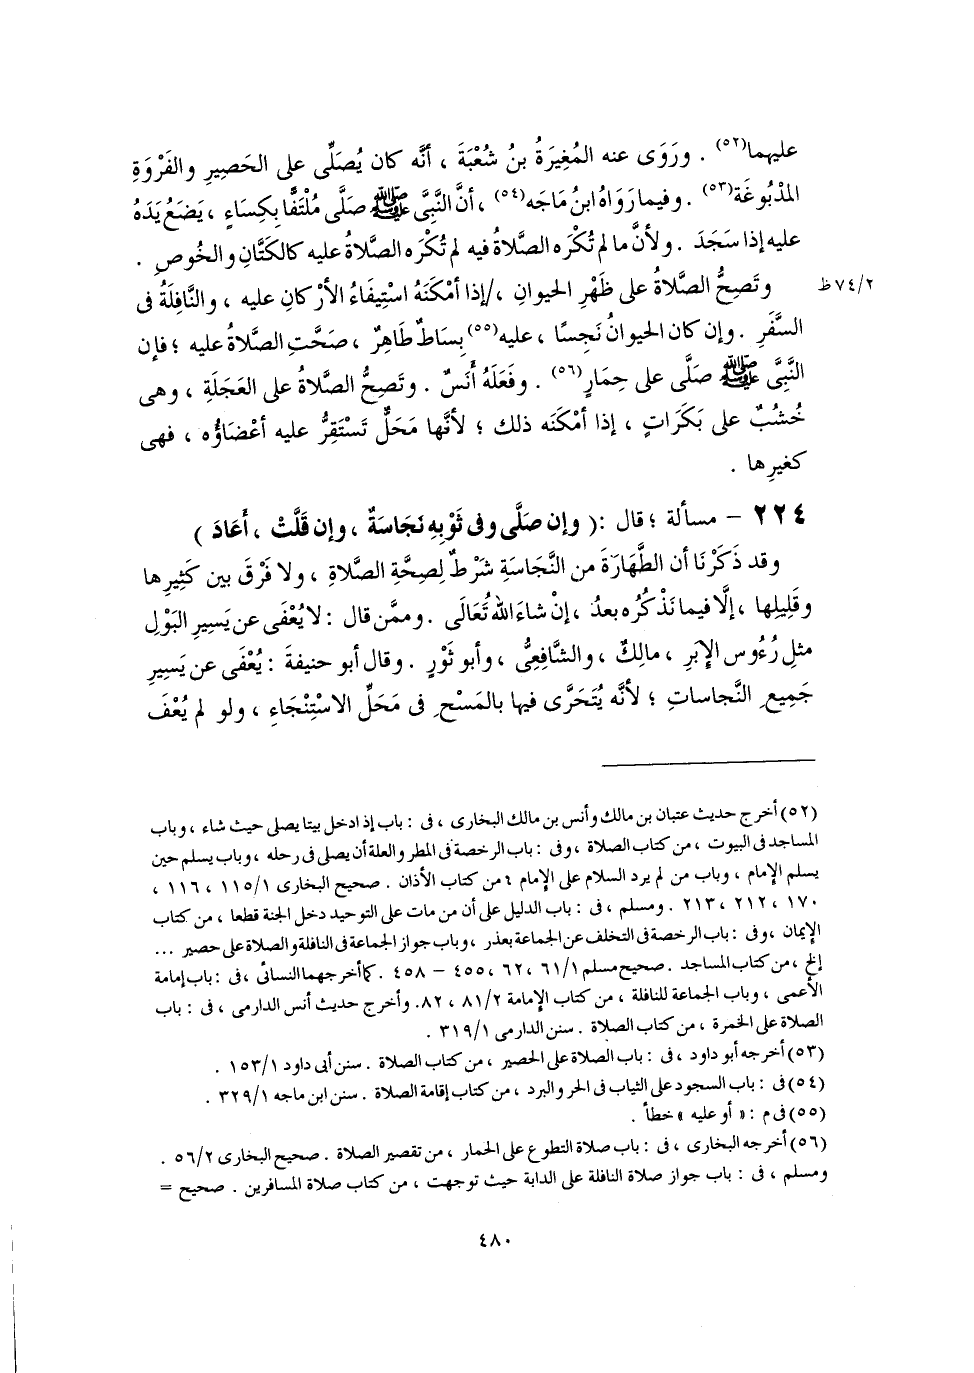 عليهما(٥٢) . ورَوَى عنه المُغِيرَةُ بنُ شُعْبَةَ ، أنَّه كان يُصَلِّى على الحَصِيرِ والفَرْوَةِ
المَدْبُوغَة(٥٣) . وفيما رَوَاهُ ابنُ مَاجَه(٥٤) ، أنَّ النَّبِىَّ ﷺ صَلَّى مُلْتَفًّا بكِسَاءٍ ، يَضَعُ يَدَهُ
عليه إذا سَجَدَ . ولأنَّ ما لم تُكْرَه الصَّلاةُ فيه لم تُكْرَه الصَّلاةُ عليه كالكَتَّانِ والخُوصِ .
وتَصِحُّ الصَّلاةُ على ظَهْرِ الحيوانِ ،/إذا أمْكَنَهُ اسْتِيفَاءُ الأرْكانِ عليه ، والنَّافِلَةُ فى ٧٤/٢ظ
السَّفَرِ . وإن كان الحيوانُ نَجِسًا ، عليه(٥٥) بِسَاطٌ طَاهِرٌ ، صَحَّتِ الصَّلاةُ عليه ؛ فإن
النَّبِىَّ ﷺ صَلَّى على حِمَارٍ(٥٦) . وفَعَلَهُ أَنَسٌ . وتَصِحُّ الصَّلاةُ على العَجَلَةِ ، وهى
خُشُبٌ على بَكَرَاتٍ ، إذا أمْكَنَه ذلك ؛ لأنَّها مَحَلٌّ تَسْتَقِرُّ عليه أعْضَاؤُه ، فهى
كغيرِها .
٢٢٤ – مسألة ؛ قال :( وإن صَلَّى وفى ثَوْبِهِ نَجَاسَةٌ ، وإن قَلَّتْ ، أَعَادَ )
وقد ذَكَرْنَا أن الطَّهَارَةَ من النَّجَاسَةِ شَرْطٌ لِصِحَّةِ الصَّلاةِ ، ولا فَرْقَ بين كَثِيرِها
وقَلِيلِها ، إلَّا فيما نَذْكُرُه بعدُ ، إنْ شاءَ اللهُ تَعَالَى . وممَّن قال : لا يُعْفَى عن يَسِيرِ البَوْلِ
مثلِ رُءُوسِ الإبَرِ ، مالِكٌ ، والشَّافِعِىُّ ، وأبو ثَوْرٍ . وقال أبو حنيفةَ : يُعْفَى عن يَسِيرِ
جَمِيعِ النَّجاساتِ ؛ لأنَّه يُتَحَرَّى فيها بالمَسْحِ فى مَحَلِّ الاسْتِنْجَاءِ ، ولو لم يُعْفَ
(٥٢) أخرج حديث عتبان بن مالك وأنس بن مالك البخارى ، فى : باب إذ ادخل بيتا يصلى حيث شاء ، وباب
المساجد فى البيوت ، من كتاب الصلاة ، وفى : باب الرخصة فى المطر والعلة أن يصلى فى رحله ، وباب يسلم حين
يسلم الإمام ، وباب من لم يرد السلام على الإمام ٤ من كتاب الأذان . صحيح البخارى ١١٥/١ ، ١١٦ ،
١٧٠ ، ٢١٢ ، ٢١٣ . ومسلم ، فى : باب الدليل على أن من مات على التوحيد دخل الجنة قطعا ، من كتاب
الإيمان ، وفى : باب الرخصة فى التخلف عن الجماعة بعذر ، وباب جواز الجماعة فى النافلة والصلاة على حصير ...
إلخ ، من كتاب المساجد . صحيح مسلم ٦١/١ ، ٦٢ ، ٤٥٥ – ٤٥٨ . كما أخرجهما النسائى ، فى : باب إمامة
الأعمى ، وباب الجماعة للنافلة ، من كتاب الإمامة ٨١/٢ ، ٨٢. وأخرج حديث أنس الدارمى ، فى : باب
الصلاة على الخمرة ، من كتاب الصلاة . سنن الدارمى ٣١٩/١ .
(٥٣) أخرجه أبو داود ، فى : باب الصلاة على الحصير ، من كتاب الصلاة . سنن أبى داود ١٥٣/١ .
(٥٤) فى : باب السجود على الثياب فى الحر والبرد ، من كتاب إقامة الصلاة . سنن ابن ماجه ٣٢٩/١ .
(٥٥) فى م : « أو عليه » خطأ .
(٥٦) أخرجه البخارى ، فى : باب صلاة التطوع على الحمار ، من تقصير الصلاة . صحيح البخارى ٥٦/٢ .
ومسلم ، فى : باب جواز صلاة النافلة على الدابة حيث توجهت ، من كتاب صلاة المسافرين . صحيح =
٤٨٠